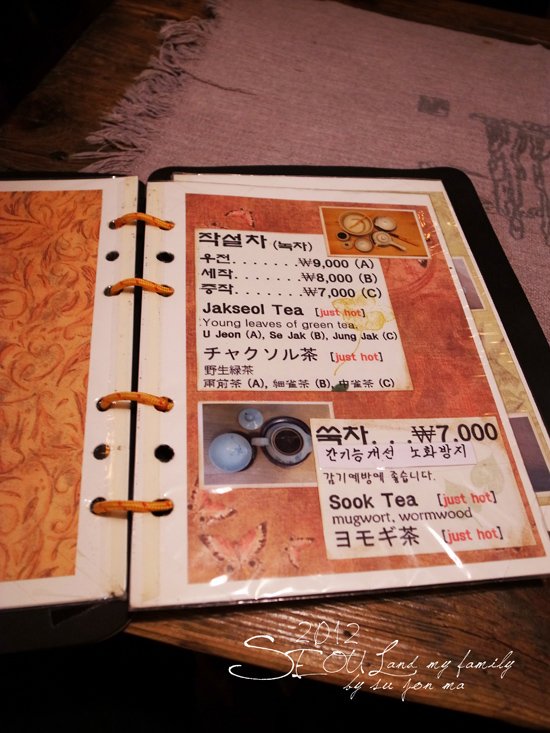 작설차 (녹차)
우전........₩9,000 (A)
세작........₩8,000 (B)
중작........₩7,000 (C)
Jakseol Tea [just hot]
Young leaves of green tea.
U Jeon (A), Se Jak (B), Jung Jak (C)
チャクソル茶 [just hot]
野生緑茶
雨前茶 (A), 細雀茶 (B), 中雀茶 (C)
쑥차. . .₩7.000
간기능개선 노화방지
감기예방에 좋습니다.
Sook Tea [just hot]
mugwort, wormwood
ヨモギ茶 [just hot]
2012
SEOUL and my family
by su jon ma